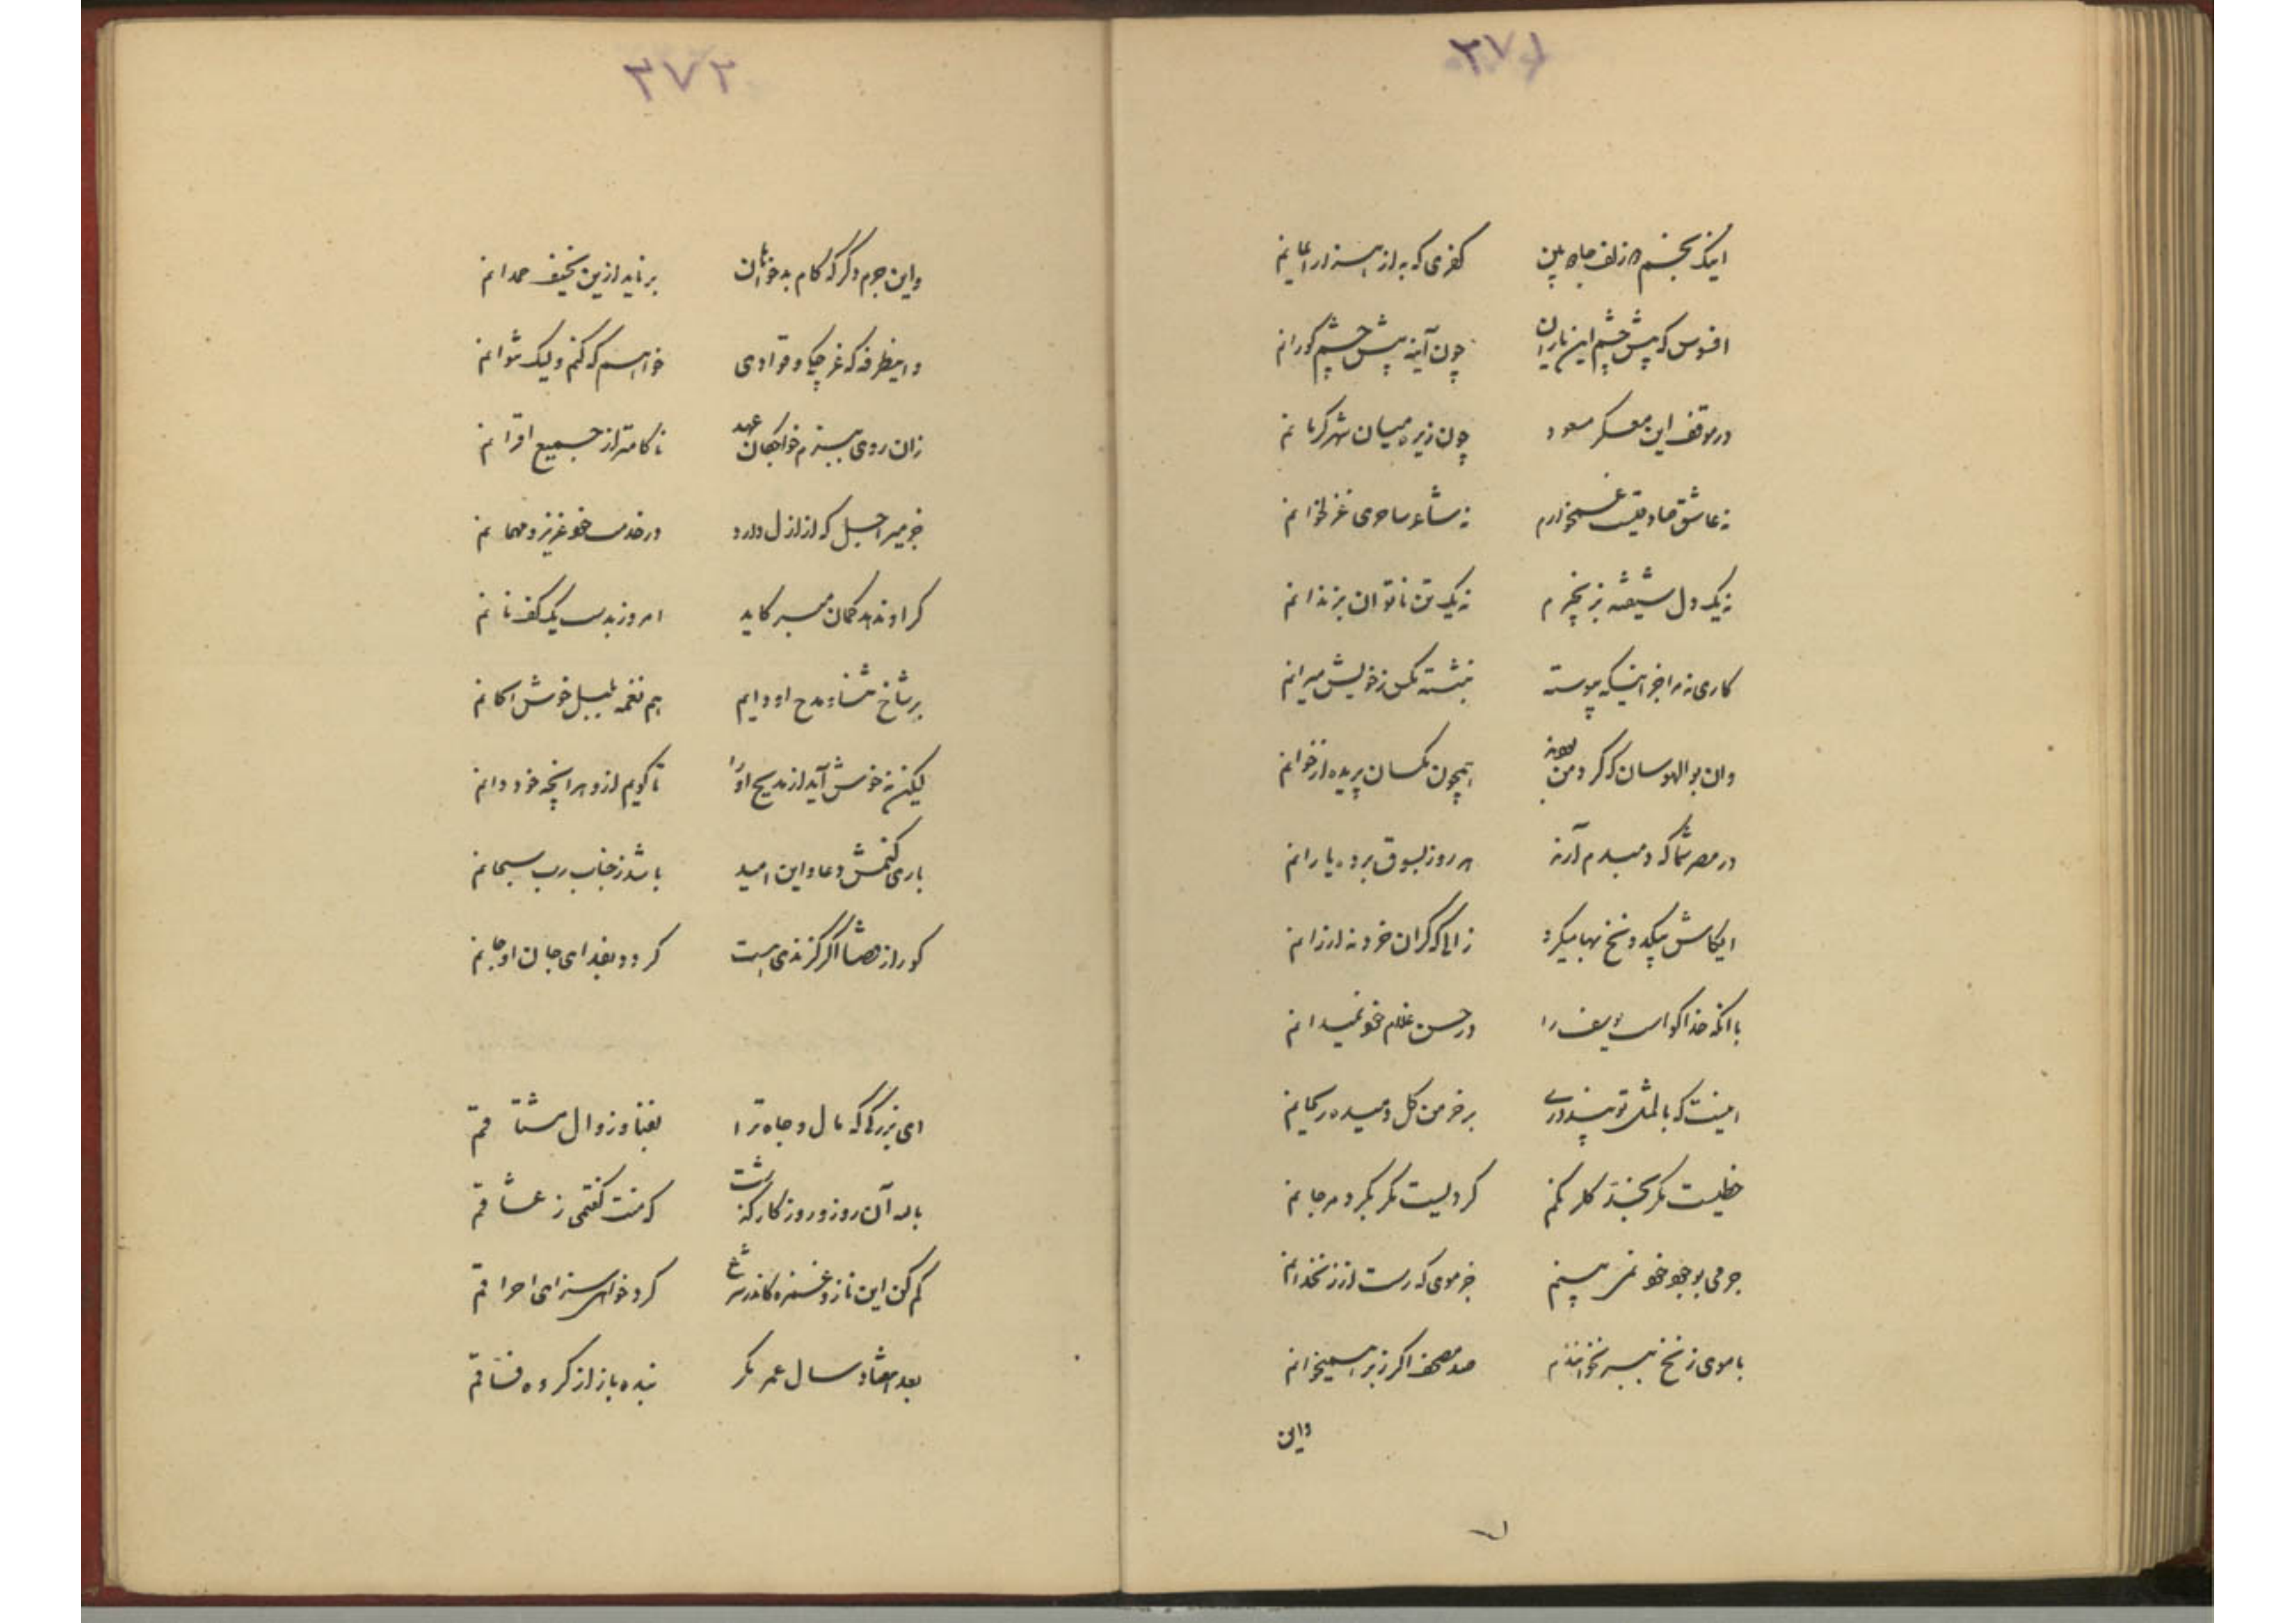 ۳۷۱
اینک بخشم زلف جادو بین کفری که به از هزار ایمانم
افسوس که پیش چشم این یاران چون آینه پیش چشم کورانم
در موقف این معسکر مسعود چون زیره میان شهر کرمانم
نه عاشق صادقیست غمخوارم نه شاعر ساحری غزلخوانم
نه یک دل شیفته بزنجیرم نه یک تن ناتوان بزندانم
کاری نه مرا جز اینکه پیوسته بنشسته مگس ز خویش میرانم
وان بوالهوسان که گرد من بودند همچون مگسان پریده از خوانم
در مصر شما که دمبدم آرند هر روز بسوق برده یارانم
ایکاش یکی دو نخ بها میکرد زالی که گران خرد نه ارزانم
با آنکه خدا گواست یوسف را در حسن غلام خود نمیدانم
اینست که بالمثل تو پنداری بر خرمن گل دمیده ریحانم
خطیست مگر بخند گلرنگم گردیست مگر بگرد مرجانم
جرمی بوجود خود نمی بینم جز موی که رست از زنخدانم
با موی زنخ بسر نخوانندم صد مصحف اگر ز بر همیخوانم
واین
۳۷۲
واین جرم دگر که کام بدخواهان برناید ازین نحیف همدانم
واینطرفه که غرچکی و قوادی خواهم که کنم ولیک نتوانم
زان روی ببزم خواجگان عهد ناکامتر از جمیع اقرانم
جز میر اجل که از ازل دارد در خدمت خود عزیز و مهمانم
گر او ندهد کمان مبر کاید امروز بدست یک کف نانم
بر شاخ ثنا و مدح او دایم هم نغمه بلبل خوش الحانم
لیکن نه خوش آید از مدیح او را تا گویم ازو هر آنچه خود دانم
باری کنمش دعا و این امید باشد ز جناب رب سبحانم
کو را ز قضا اگر گزندی هست گردد بفدای جان او جانم
ای بزرگی که مال و جاه ترا بفنا و زوال مشتاقم
یاد آن روز و روزگار گذشت که منت گفتمی ز عشاقم
کم کن این ناز و غمزه کاندر شرع کرد خواهی سزای احراقم
بعد هفتاد سال عمر مگر بنده باز از گروه فساقم